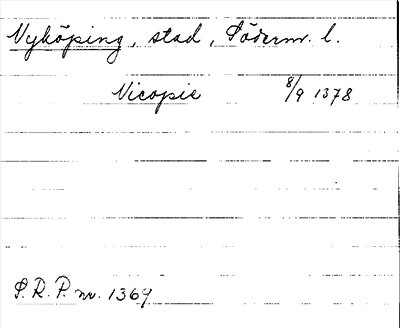 Nyköping, stad, Söderm. l.
Nicopie 8/9 1378
S.R.P. nr. 1369